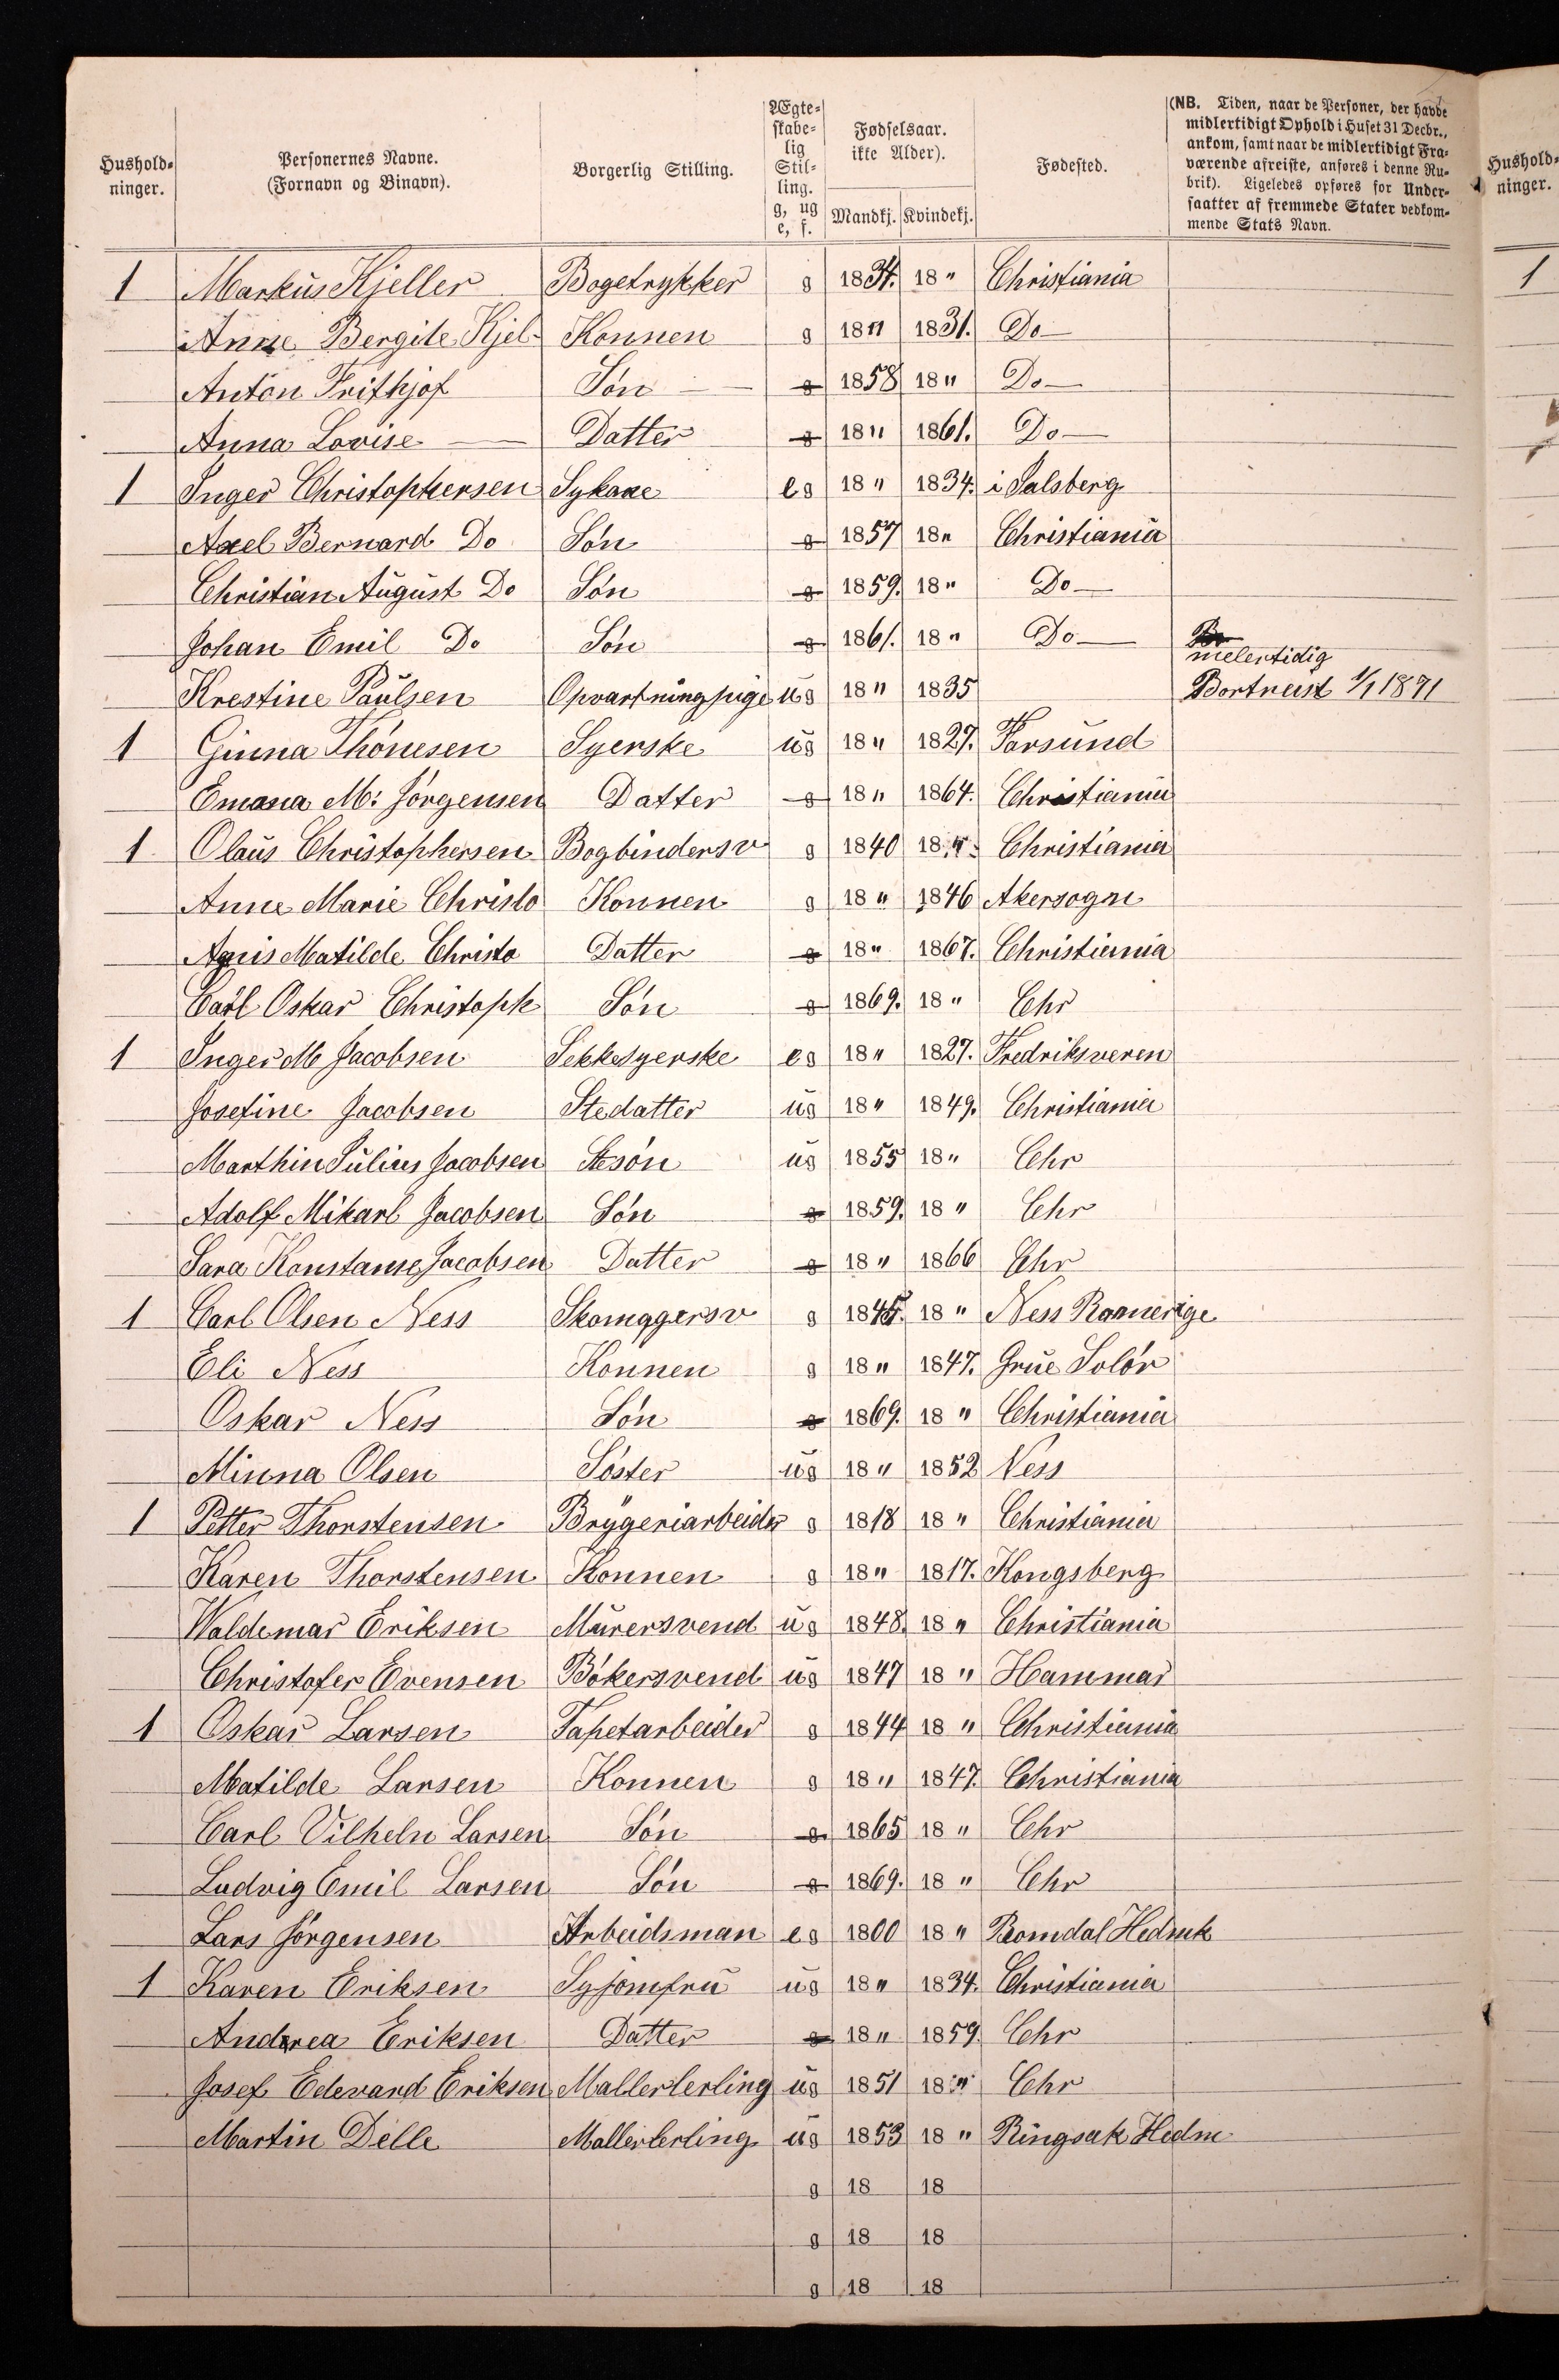 Hushold-
ninger.
Personernes Navne.
(Fornavn og Binavn).
Borgerlig Stilling.
Ægte-
skabe-
lig
Stil-
ling.
g, ug
e, f.
Fødselsaar.
ikke Alder).
Mandkj. Kvindekj.
Fødested.
(NB. Tiden, naar de Personer, der havde
midlertidigt Ophold i Huset 31 Decbr.,
ankom, samt naar de midlertidigt Fra-
værende afreiste, anføres i denne Ru-
brik). Ligeledes opføres for Under-
saatter af fremmede Stater vedkom-
mende Stats Navn.
Hushold-
ninger.
1 Markus Kjeller Bogetrykker g 1834. 18 " Christiania 1
Anne Bergite Kjel- Konnen g 18 " 1831. Do —
Anton Frithjof Søn — g 1858 18 " Do —
Anna Lovise — Datter g 18 " 1861. Do —
1 Inger Christophersen Sykone eg 18 " 1834. i Salsberg
Axel Bernard Do Søn g 1857 18 " Christiania
Christian August Do Søn g 1859. 18 " Do —
Johan Emil Do Søn g 1861. 18 " Do —
melertidig
Krestine Paulsen Opvartningpige ug 18 " 1835 Bortreist 1/1 1871
1 Ginna Thónesen Syerske ug 18 " 1827. Farsund
Emma M: Jørgensen Datter g 18 " 1864. Christiania
1 Olaus Christophersen Bogbindersv g 1840 18 " Christiania
Anne Marie Christo Konnen g 18 " 1846 Akersogn
Agnis Matilde Christo Datter g 18 " 1867. Christiania
Carl Oskar Christoph Søn g 1869. 18 " Chr
1 Inger M Jacobsen Sekkesyerske eg 18 " 1827. Fredriksveren
Josefine Jacobsen Stedatter ug 18 " 1849. Christiania
Marthin Julius Jacobsen Stesøn ug 1855 18 " Chr
Adolf Mikarl Jacobsen Søn g 1859. 18 " Chr
Sara Konstanse Jacobsen Datter g 18 " 1866 Chr
1 Carl Olsen Ness Skomagersv g 1845. 18 " Ness Romerige
Eli Ness Konnen g 18 " 1847. Grue Solór
Oskar Ness Søn g 1869. 18 " Christiania
Minna Olsen Søster ug 18 " 1852 Ness
1 Petter Thorstensen Brygeriarbeider g 1818 18 " Christiania
Karen Thorstensen Konnen g 18 " 1817. Kongsberg
Waldemar Eriksen Murersvend ug 1848. 18 " Christiania
Christofer Evensen Bøkersvend ug 1847 18 " Hammar
1 Oskar Larsen Tapetarbeider g 1844 18 " Christiania
Matilde Larsen Konnen g 18 " 1847. Christiania
Carl Vilheln Larsen Søn g 1865 18 " Chr
Ludvig Emil Larsen Søn g 1869. 18 " Chr
Lars Jørgensen Arbeidsman eg 1800 18 " Romdal Hedmk
1 Karen Eriksen Syjomfru ug 18 " 1834. Christiania
Andrea Eriksen Datter g 18 " 1859 Chr
Josef Edevard Eriksen Mallerlerling ug 1851 18 " Chr
Martin Delle Mallerlerling ug 1853 18 " Ringsak Hedm
g 18 18
g 18 18
g 18 18